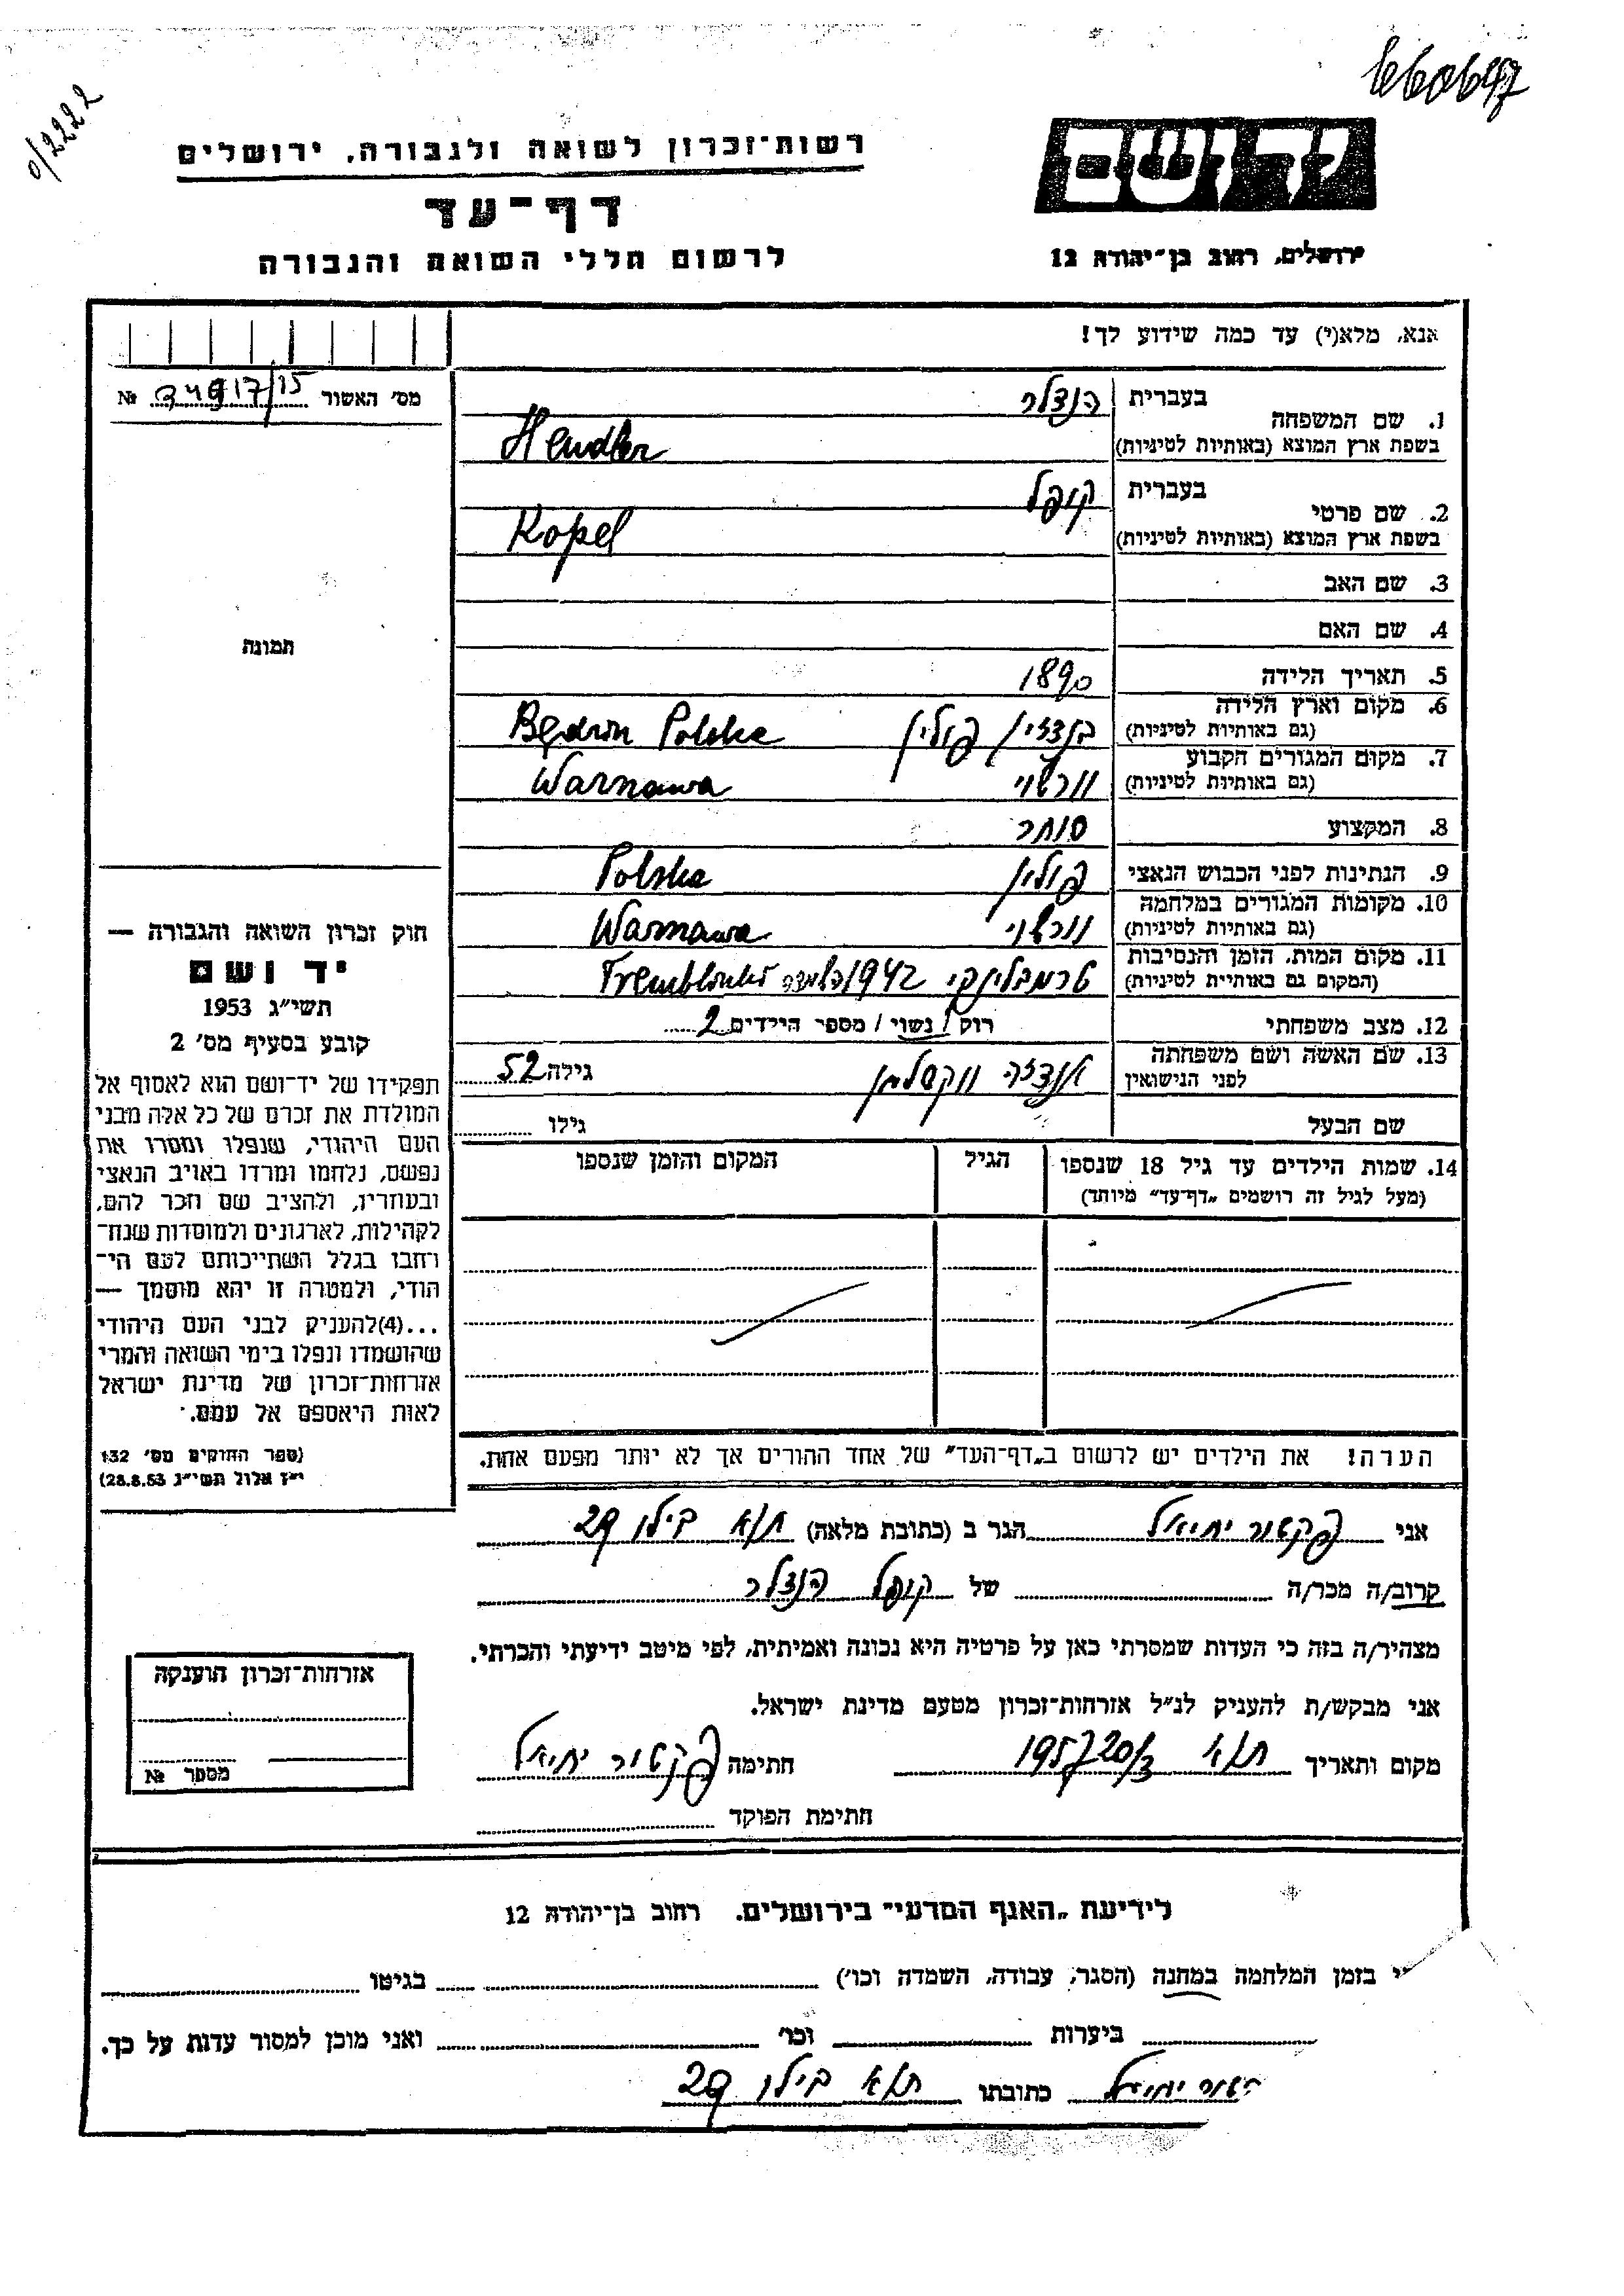 0/2222
רשות־זכרון לשואה ולגבורה, ירושלים
יד ושם
דף־עד
לרשום חללי השואה והגבורה
ירושלים, רחוב בן־יהודה 12
אנא, מלא(י) עד כמה שידוע לך!
מס' האשור 34917/15 №
1. שם המשפחה
בעברית הנדלר
בשפת ארץ המוצא (באותיות לטיניות) Hendler
2. שם פרטי
בעברית קופל
בשפת ארץ המוצא (באותיות לטיניות) Kopel
3. שם האב
4. שם האם
תמונה
5. תאריך הלידה 1890
6. מקום וארץ הלידה (גם באותיות לטיניות) בנדזין פולין Będzin Polska
7. מקום המגורים הקבוע (גם באותיות לטיניות) וורשוי Warszawa
8. המקצוע סוחר
9. הנתינות לפני הכבוש הנאצי פולין Polska
10. מקומות המגורים במלחמה (גם באותיות לטיניות) וורשוי Warszawa
11. מקום המות, הזמן והנסיבות (המקום גם באותיית לטיניות) טרמבלינקי 1942
12. מצב משפחתי רוק / נשוי / מספר הילדים 2
13. שם האשה ושם משפחתה לפני הנישואין גילה 52
שם הבעל גילו
14. שמות הילדים עד גיל 18 שנספו
(מעל לגיל זה רושמים „דף־עד" מיוחד)
הגיל
המקום והזמן שנספו
חוק זכרון השואה והגבורה —
יד ושם
תשי"ג 1953
קובע בסעיף מס' 2
תפקידו של יד־ושם הוא לאסוף אל
המולדת את זכרם של כל אלה מבני
העם היהודי, שנפלו ומסרו את
נפשם, נלחמו ומרדו באויב הנאצי
ובעוזריו, ולהציב שם וזכר להם,
לקהילות, לארגונים ולמוסדות שנח־
רחבו בגלל השתייכותם לעם הי־
הודי, ולמטרה זו יהא מוסמך —
...(4)להעניק לבני העם היהודי
שהושמדו ונפלו בימי השואה והמרי
אזרחות־זכרון של מדינת ישראל
לאות היאספם אל עמם.
(ספר החוקים מס' 132
י"ז אלול תשי"ג 28.8.53)
הערה! את הילדים יש לרשום ב„דף־העד" של אחד ההורים אך לא יותר מפעם אחת.
אני פקטור יחיאל הגר ב (כתובת מלאה) ת/א בילו 29
קרוב/ה מכר/ה של קופל הנדלר
מצהיר/ה בזה כי העדות שמסרתי כאן על פרטיה היא נכונה ואמיתית, לפי מיטב ידיעתי והכרתי.
אני מבקש/ת להעניק לנ"ל אזרחות־זכרון מטעם מדינת ישראל.
מקום ותאריך ת/א 20/3 חתימה פקטור יחיאל
חתימת הפוקד
אזרחות־זכרון הוענקה
מספר №
לידיעת „האגף המדעי" בירושלים. רחוב בן־יהודה 12
בזמן המלחמה במחנה (הסגר, עבודה, השמדה וכו') בגיטו
ביערות וכו' ואני מוכן למסור עדות על כך.
יחיאל כתובתו ת/א בילו 29